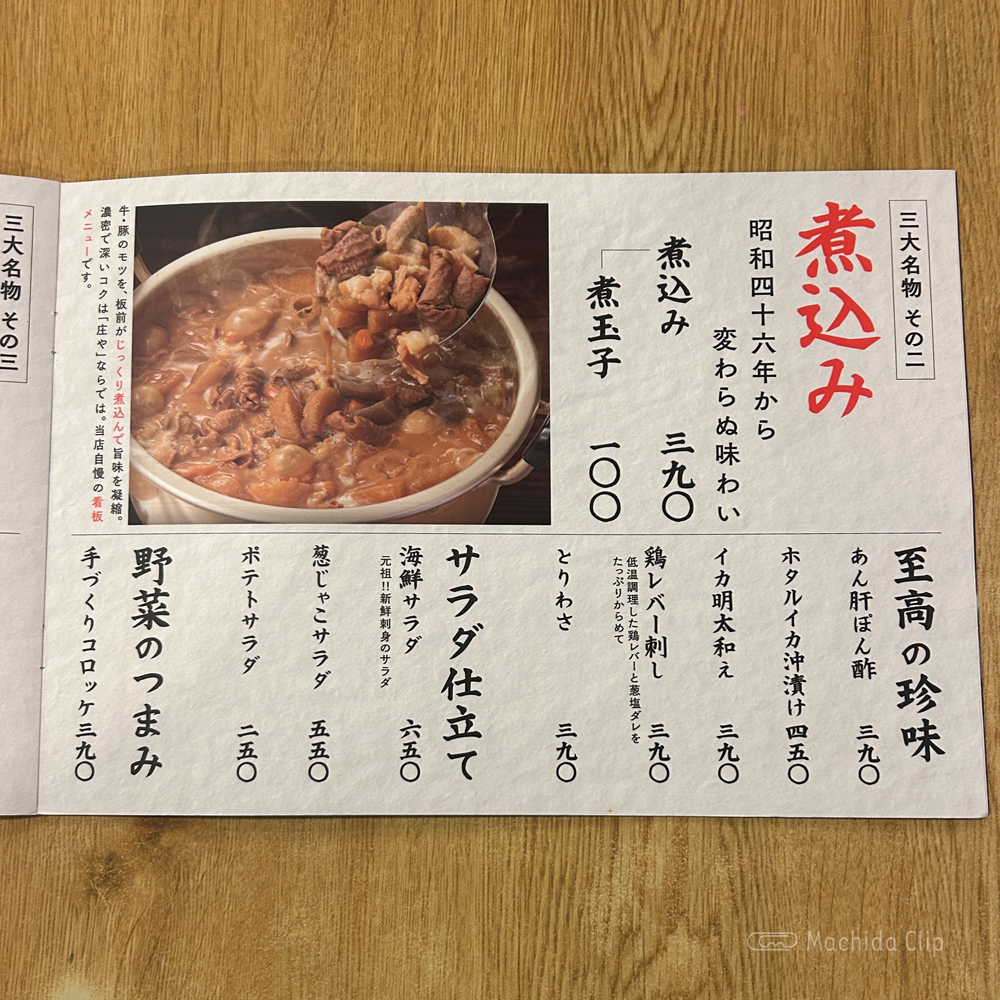 三大名物 その二
煮込み
昭和四十六年から
変わらぬ味わい
煮込み 三九〇
煮玉子 一〇〇
牛・豚のモツを、板前がじっくり煮込んで旨味を凝縮。
濃密で深いコクは「庄や」ならでは。当店自慢の看板
メニューです。
至高の珍味
あん肝ぽん酢 三九〇
ホタルイカ沖漬け 四五〇
イカ明太和え 三九〇
鶏レバー刺し 三九〇
低温調理した鶏レバーと葱塩ダレを
たっぷりからめて
とりわさ 三九〇
サラダ仕立て
海鮮サラダ 六五〇
元祖!!新鮮刺身のサラダ
葱じゃこサラダ 五五〇
ポテトサラダ 二五〇
野菜のつまみ
手づくりコロッケ 三九〇
三大名物 その三
Machida Clip